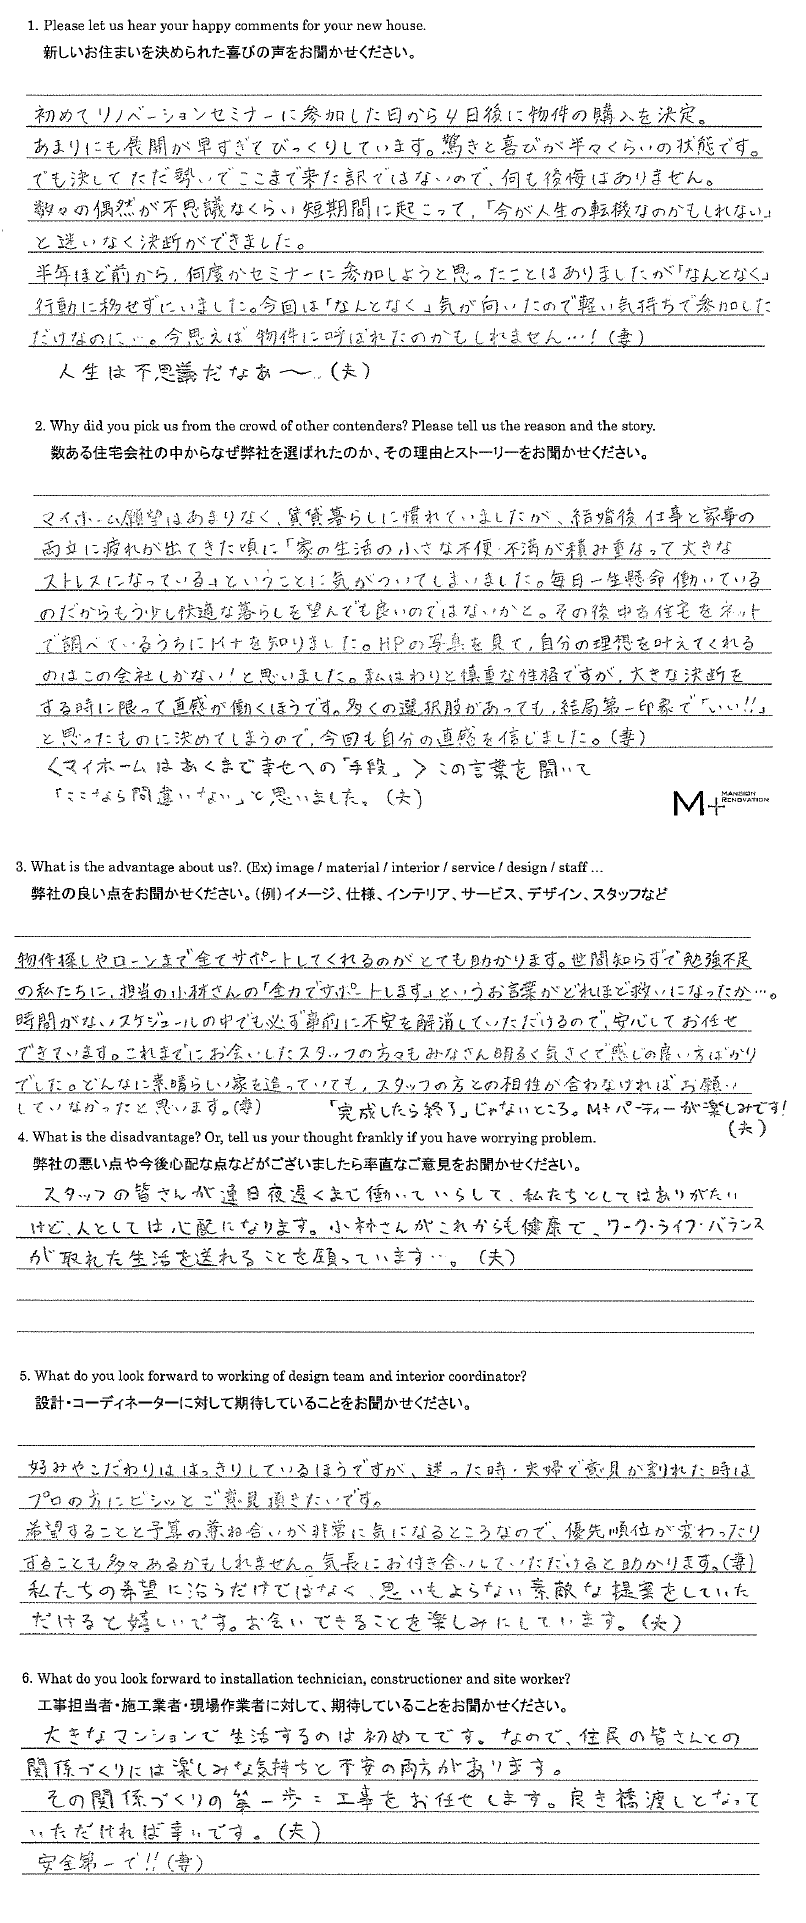 1. Please let us hear your happy comments for your new house.
新しいお住まいを決められた喜びの声をお聞かせください。
初めてリノベーションセミナーに参加した日から4日後に物件の購入を決定。
あまりにも展開が早すぎてびっくりしています。驚きと喜びが半々くらいの状態です。
でも決してただ勢いでここまで来た訳ではないので、何も後悔はありません。
数々の偶然が不思議なくらい短期間に起こって、「今が人生の転機なのかもしれない」
と迷いなく決断ができました。
半年ほど前から、何度かセミナーに参加しようと思ったことはありましたが「なんとなく」
行動に移せずにいました。今回は「なんとなく」気が向いたので軽い気持ちで参加した
だけなのに…。今思えば物件に呼ばれたのかもしれません…!(妻)
人生は不思議だなあ〜…(夫)
2. Why did you pick us from the crowd of other contenders? Please tell us the reason and the story.
数ある住宅会社の中からなぜ弊社を選ばれたのか、その理由とストーリーをお聞かせください。
マイホーム願望はあまりなく、賃貸暮らしに慣れていましたが、結婚後仕事と家事の
両立に疲れが出てきた頃に「家の生活の小さな不便・不満が積み重なって大きな
ストレスになっている」ということに気がついてしまいました。毎日一生懸命働いている
のだからもう少し快適な暮らしを望んでも良いのではないかと。その後中古住宅をネット
で調べているうちにM+を知りました。HPの写真を見て、自分の理想を叶えてくれる
のはこの会社しかない!と思いました。私はわりと慎重な性格ですが、大きな決断を
する時に限って直感が働くほうです。多くの選択肢があっても、結局第一印象で「いい!!」
と思ったものに決めてしまうので、今回も自分の直感を信じました。(妻)
〈マイホームはあくまで幸せへの「手段」〉この言葉を聞いて
「ここなら間違いない」と思いました。(夫)
M+ MANSION RENOVATION
3. What is the advantage about us?. (Ex) image / material / interior / service / design / staff ...
弊社の良い点をお聞かせください。(例)イメージ、仕様、インテリア、サービス、デザイン、スタッフなど
物件探しやローンまで全てサポートしてくれるのがとても助かります。世間知らずで勉強不足
の私たちに、担当の小林さんの「全力でサポートします」というお言葉がどれほど救いになったか…。
時間がないスケジュールの中でも必ず事前に不安を解消していただけるので、安心してお任せ
できています。これまでにお会いしたスタッフの方々もみなさん明るく気さくで感じの良い方ばかり
でした。どんなに素晴らしい家を造っていても、スタッフの方との相性が合わなければお願い
していなかったと思います。(妻)
「完成したら終了」じゃないところ。M+パーティーが楽しみです!
(夫)
4. What is the disadvantage? Or, tell us your thought frankly if you have worrying problem.
弊社の悪い点や今後心配な点などがございましたら率直なご意見をお聞かせください。
スタッフの皆さんが連日夜遅くまで働いていらして、私たちとしてはありがたい
けど、人としては心配になります。小林さんがこれからも健康で、ワーク・ライフ・バランス
が取れた生活を送れることを願っています…。(夫)
5. What do you look forward to working of design team and interior coordinator?
設計・コーディネーターに対して期待していることをお聞かせください。
好みやこだわりははっきりしているほうですが、迷った時・夫婦で意見が割れた時は
プロの方にビシッとご意見頂きたいです。
希望することと予算の兼ね合いが非常に気になるところなので、優先順位が変わったり
することも多々あるかもしれません。気長にお付き合いしていただけると助かります。(妻)
私たちの希望に沿うだけではなく、思いもよらない素敵な提案をしていた
だけると嬉しいです。お会いできることを楽しみにしています。(夫)
6. What do you look forward to installation technician, constructioner and site worker?
工事担当者・施工業者・現場作業者に対して、期待していることをお聞かせください。
大きなマンションで生活するのは初めてです。なので、住民の皆さんとの
関係づくりには楽しみな気持ちと不安の両方があります。
その関係づくりの第一歩に工事をお任せします。良き橋渡しとなって
いただければ幸いです。(夫)
安全第一で!!(妻)